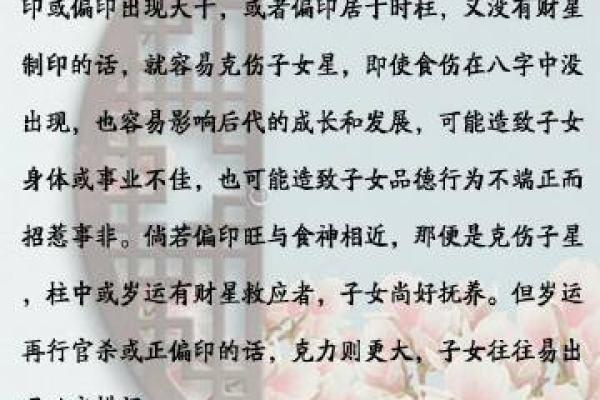 印或偏印出现天干，或者偏印居于时柱，又没有财星
制印的话，就容易克伤子女星，即使食伤在八字中没
出现，也容易影响后代的成长和发展，可能造致子女
身体或事业不佳，也可能造致子女品德行为不端正而
招惹事非。倘若偏印旺与食神相近，那便是克伤子星
，柱中或岁运有财星救应者，子女尚好抚养。但岁运
再行官杀或正偏印的话，克力则更大，子女往往易出